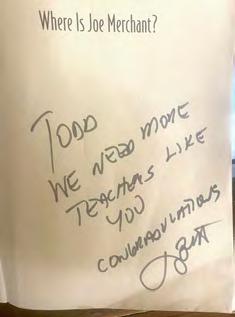 Where Is Joe Merchant?
TODD
WE NEED MORE
TEACHERS LIKE
YOU
CONGRADULATIONS